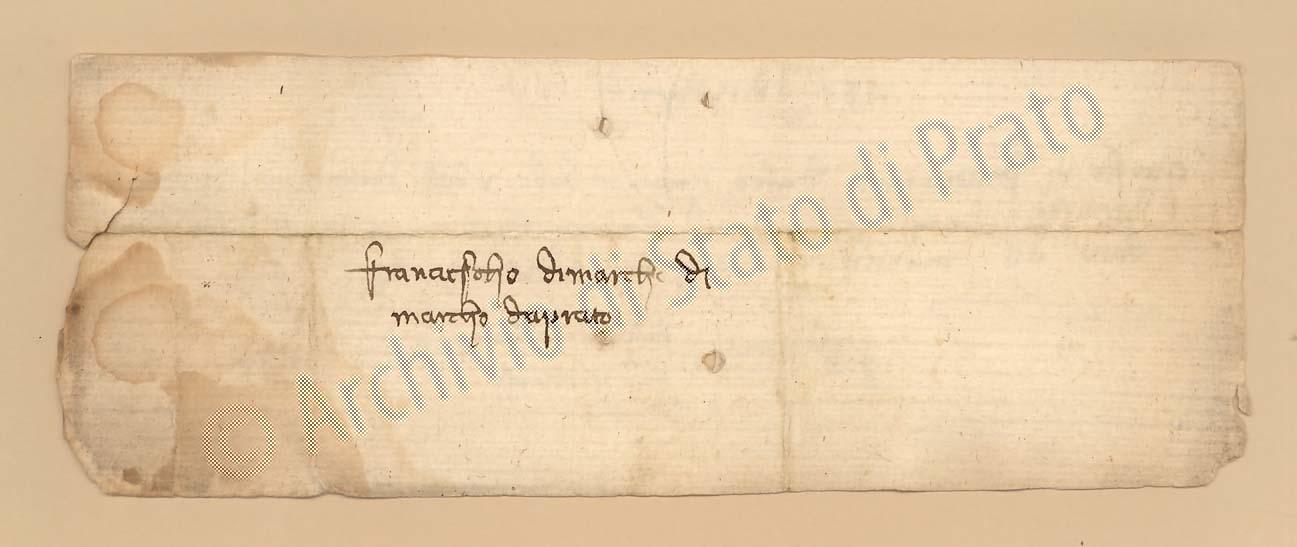 francescho dimarcho di
marcho daprato
© Archivio di Stato di Prato